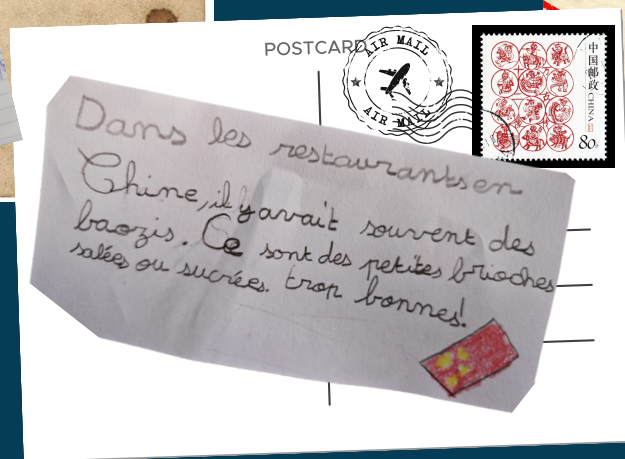 POSTCARD
AIR MAIL
AIR MAIL
中国邮政
CHINA
80分
Dans les restaurants en
Chine, il y avait souvent des
baozis. Ce sont des petites brioches
salées ou sucrées. trop bonnes!